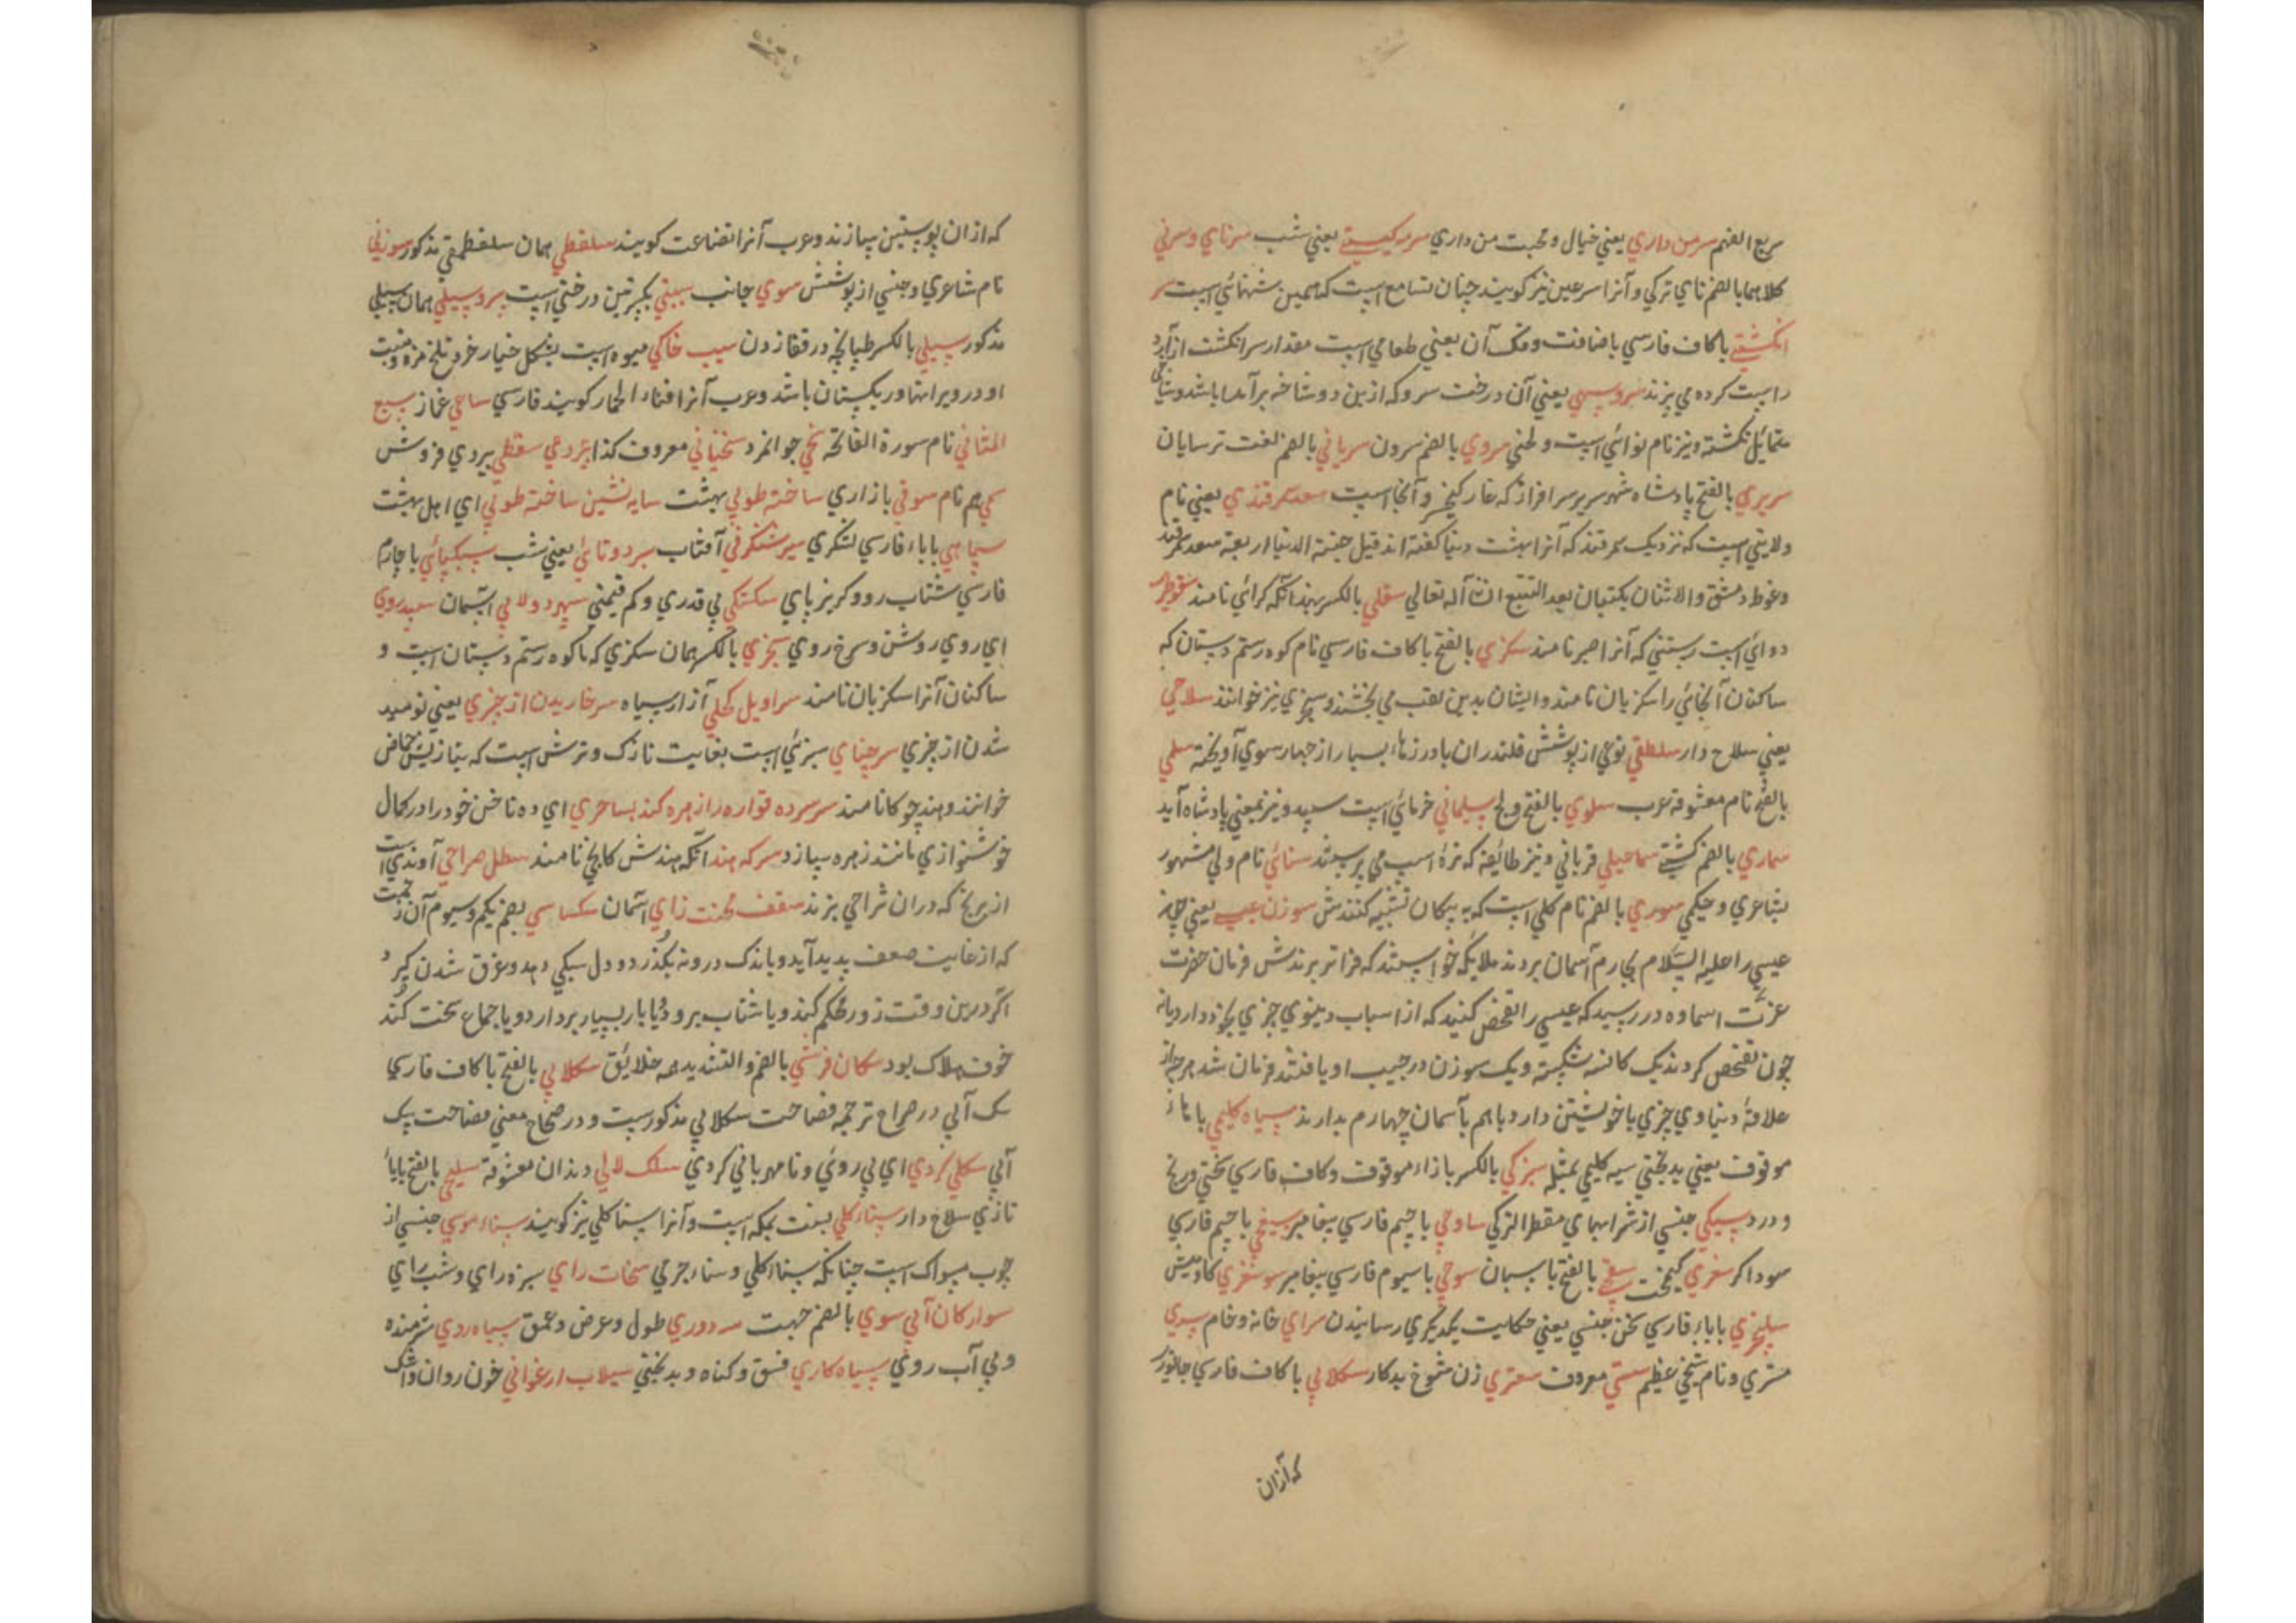 سریع الفهم سرمن داری یعنی خیال و محبت من داری سرمه کیستی یعنی شب سرنای و سرنی
کلاهما بالضم نای ترکی و آنرا سرعین نیز کویند چنان تسامع است که همین شهنائی است سر
انکشتی با کاف فارسی باضافت و فک آن یعنی طعامی است مقدار سر انکشت از آرد
راست کرده می پزند سرو سهی یعنی آن درخت سرو که از بین دو شاخه برآمده باشد و شاخی
متمائیل نکشته و نیز نام نوائی است و لحنی سروی بالضم سرون سریانی بالضم لغت ترسایان
سریری بالفتح پادشاه شهر سریر سرافراز که غار کیخسرو آنجا است سغد سمرقندی یعنی نام
ولایتی است که نزدیک سمرقند که آنرا بهشت دنیا کفته اند قیل جنة الدنیا اربعة سغد سمرقند
وغوط دمشق و الاثنان یکتبان بعد التتبع ان شاء الله تعالی سفلی بالکسر
دوائی است رستنی که آنرا صبر نامند سکزی بالفتح با کاف فارسی نام کوه رستم دستان که
ساکنان آنجائی را سکزیان نامند و ایشان بدین لقب می بخشند و سجزی نیز خوانند سلاحی
یعنی سلاح دار سلطقی نوعی از پوشش قلندران با درزهاء بسیار از چهار سوی آویخته سلمی
بالفتح نام معشوقه عرب سلوی بالفتح ولج سلیمانی خرمائی است سپید و نیز بمعنی پادشاه آید
سماری بالضم کشتی سماعیلی قربانی و نیز طائفه که نرهٔ اسب می پرستند سنائی نام ولی مشهور
بشاعری و حکیمی سوری بالضم نام کلی است که به پیکان تشبیه کنندش سوزن عیسی یعنی چون
عیسی را علیه السلام بچارم آسمان بردند ملائکه خواستند که فراتر برندش فرمان حضرت
عزت اسماوه در رسید که عیسی را تفحص کنید که از اسباب دنیوی چیزی بخود دارد یا نه
چون تفحص کردند یک کاسه شکسته و یک سوزن در جیب او یافتند فرمان شد هرچه از
علاقهٔ دنیاوی چیزی با خویشتن دارد باهم بآسمان چهارم بدارند سیاه کلیمی با هاء
موقوف یعنی بدبختی سیه کلیمی بمثله سبزکی بالکسر با زاء موقوف و کاف فارسی سختی و رنج
و درد سیکی جنسی از شرابهای مقطر الترکی ساوجی با جیم فارسی پیغامبر سیغجی با جیم فارسی
سوداکر سغری کیمخت سقی بالفتح پاسبان سوجی با سیوم فارسی پیغامبر سوسغری کاو میش
سلپخری با باء فارسی سخن جنسی یعنی حکایت یکدیکری رسانیدن سرای خانه و خام سری
مشتری و نام شیخی عظیم سستی معروف سعتری زن شوخ بدکار سکلابی با کاف فارسی جانور
که آزان
که ازان پوستین سازند و عرب آنرا قضاعت کویند سلقطی همان سلقطقی مذکور سوزنی
نام شاعری و جنسی از پوشش سوی جانب سیبی بکسرتین درختی است سروسیلی همان سیلی
مذکور سیلی بالکسر طپانچه در قفا زدن سیب خاکی میوه است بشکل خیار خرد تلخ مزه و منبت
او در ویرانها و ریکستان باشد و عرب آنرا قثاء الحمار کویند فارسی ساعی غماز سبع
المثانی نام سورة الفاتحة سخی جوانمرد سختیانی معروف کذا سقطی پیردی فروش
کی هم نام سوقی بازاری ساخته طوبی بهشت سایه نشین ساخته طوبی ای اهل بهشت
سپاهی با باء فارسی لشکری سیر شنکرفی آفتاب سرد و تابی یعنی شب سبکپائی با چارم
فارسی شتاب رو و کریزپای سکستکی بی قدری و کم قیمتی سپهر دولابی آسمان سپیدروی
ای روی روشن و سرخ روی سجزی بالکسر همان سکزی که با کوه رستم دستان است و
ساکنان آنرا سکزیان نامند سراویل کحلی آزار سیاه سرخاریدن از چیزی یعنی نومید
شدن از چیزی سرچنای سبزئی است بغایت نازک و ترش است که بتازیش حماض
خوانند و هند چوکا نامند سرسرده قواره را زهره کند بساحری ای ده ناخن خود را در کمال
خوشنوازی مانند زهره سازد سرکه هند آنکه هندش کانجی نامند سطل صراحی آوندی است
از برنج که دران شراحی پزند سقف محنت زای آسمان سکساسی بضم یکم و سیوم آن زحمت
که از غایت ضعف پدید آید و باندک درونه بکذرد و دل سبکی دهد و عرق شدن کیرد و
اکر درین وقت زور محکم کند و یا شتاب برود و یا بار بسیار بردارد و یا جماع سخت کند
خوف هلاک بود سکان فرشی بالضم و التشدید همه خلائق سکلابی بالفتح با کاف فارسی
سک آبی در صراح ترجمه قضاعت سکلابی مذکورست و در صحاح معنی قضاعت سک
آبی سکلی کردی ای بی روئی و نامهربانی کردی سلک لالی دندان معشوقة سلیحی بالفتح بایاء
تازی سلاح دار سناء کلی بسنت بمکه است و آنرا سنا کلی نیز کویند سناء موسی جنسی از
چوب مسواک است چنانکه سناء کلی و سناء جرمی سخات رای سبزه رای و شب رای
سوار کان آبی سوی بالضم جهت سه دوری طول و عرض و عمق سیاه روی شرمنده
و بی آب روئی سیاه کاری فسق و کناه و بدبختی سیلاب ارغوانی خون روان و اشک